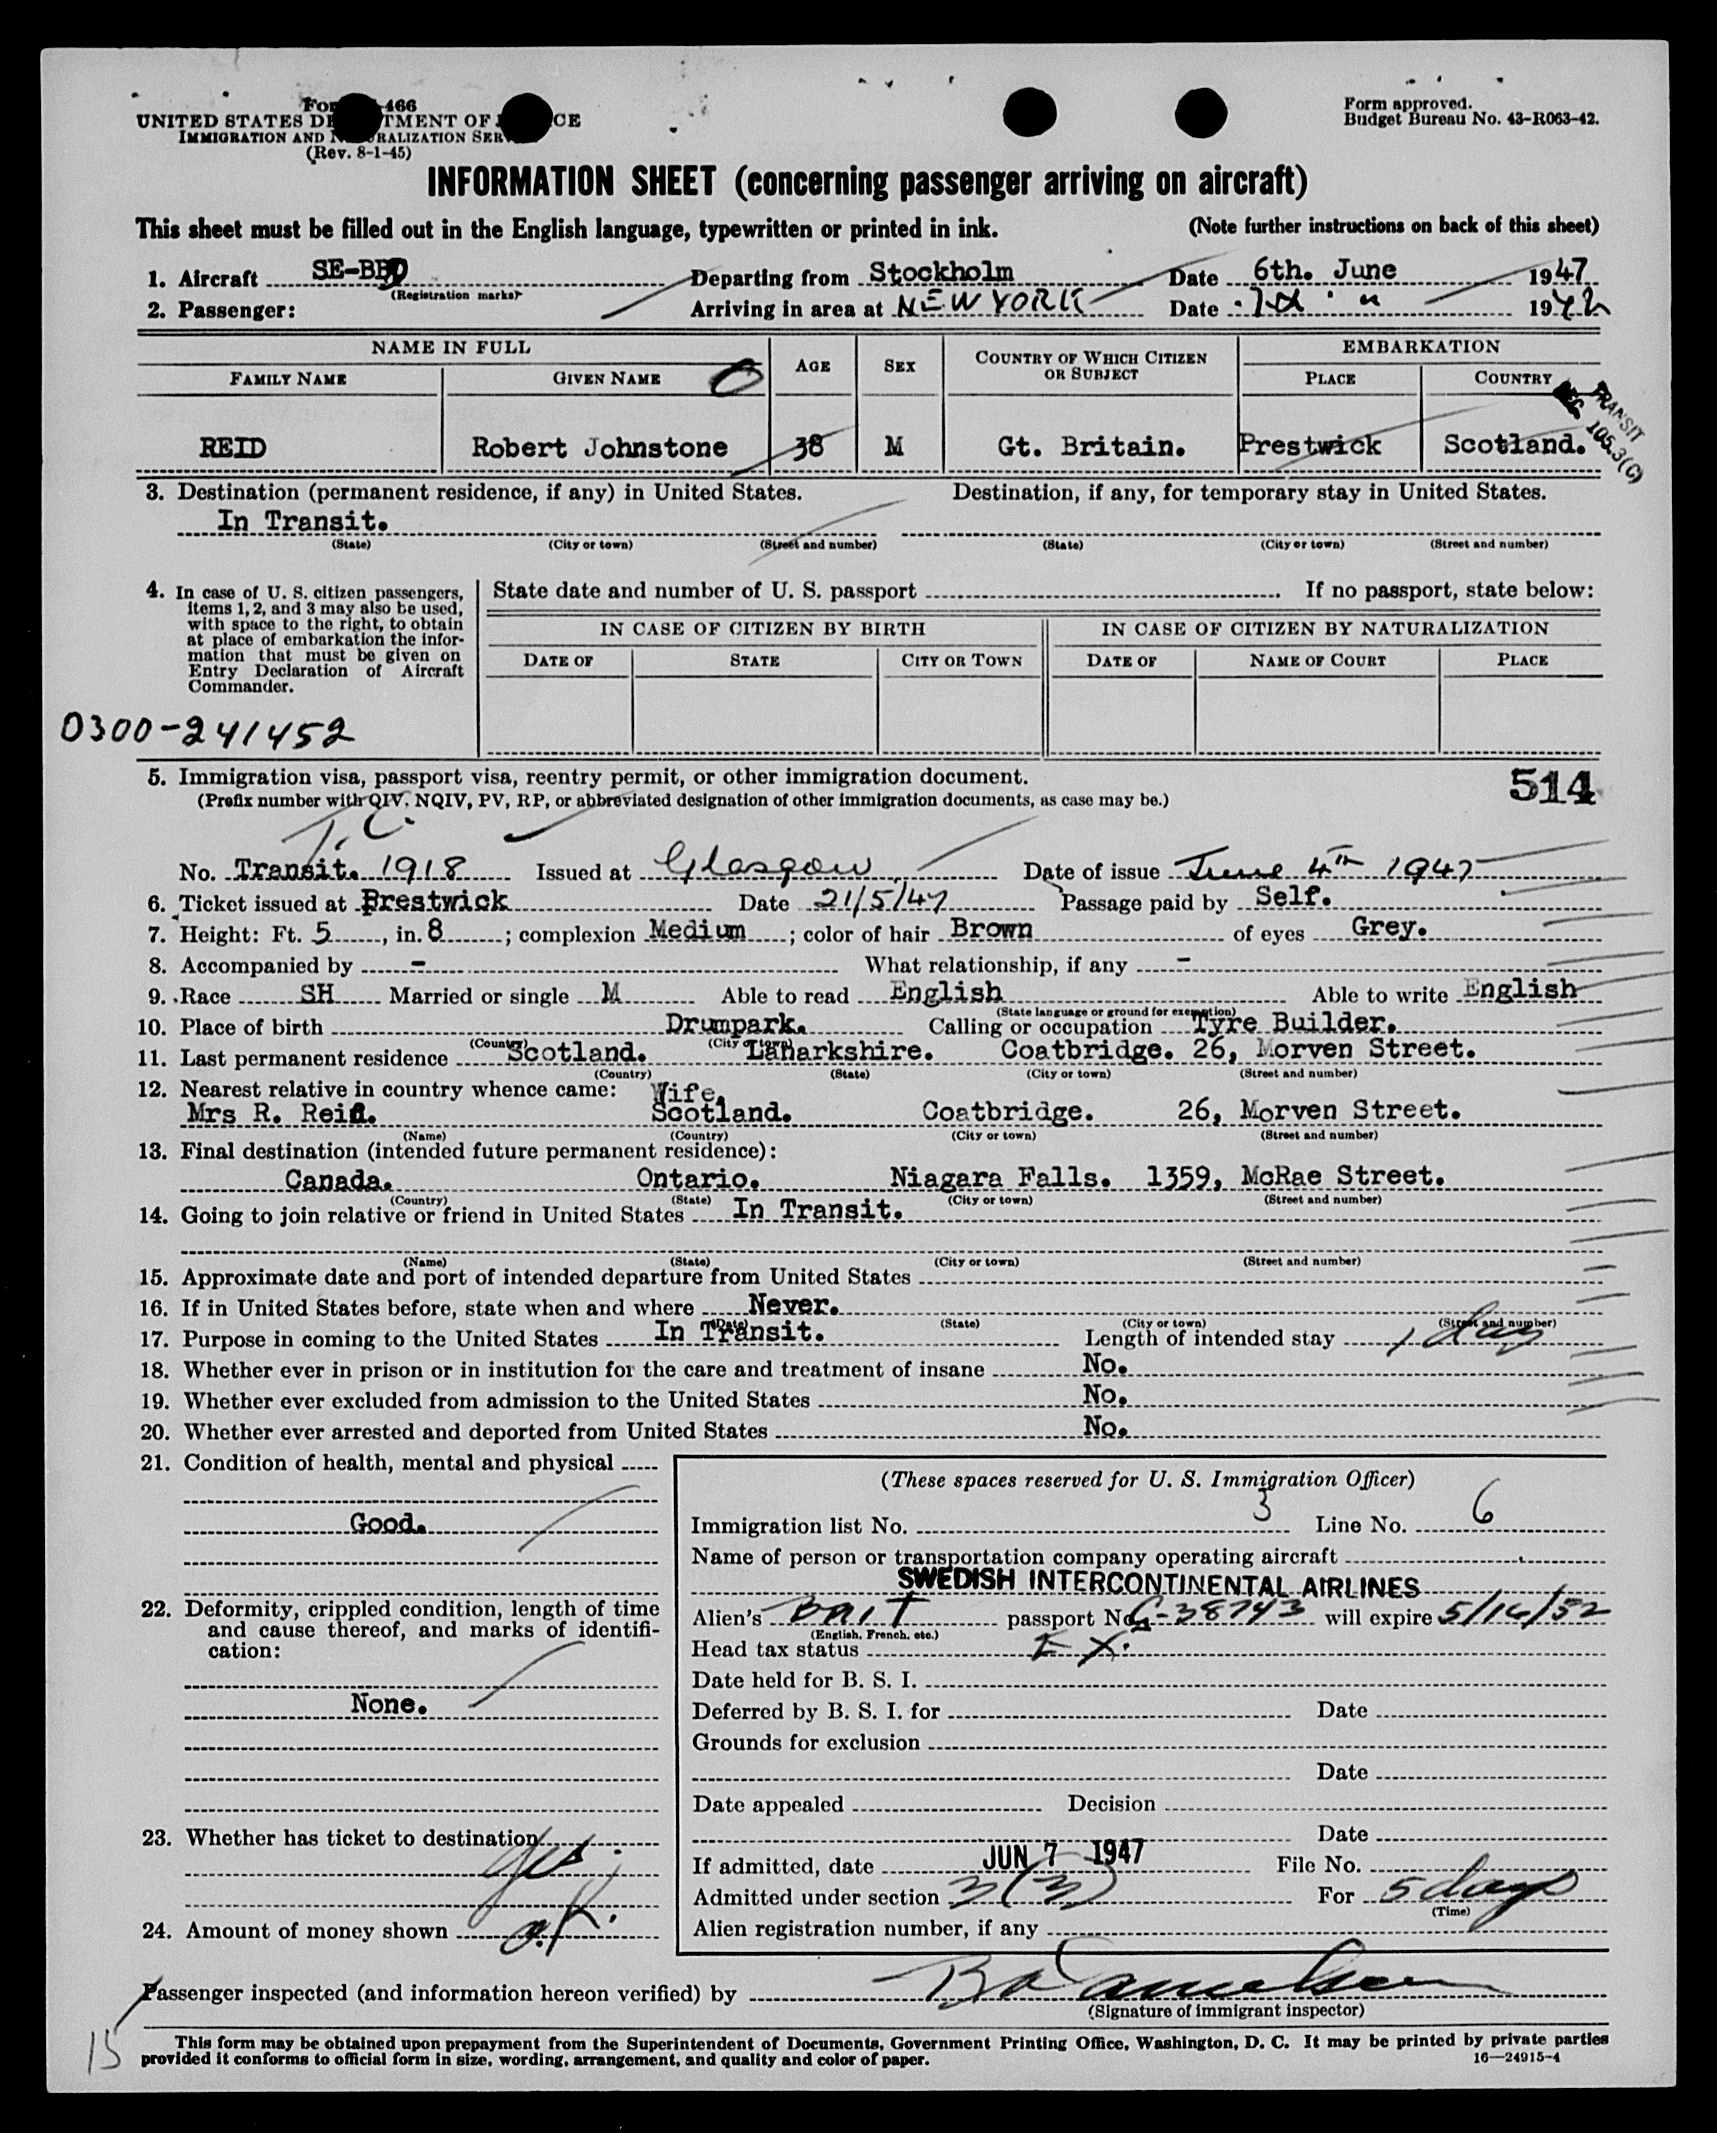 466
UNITED STATES DE TMENT OF CE
IMMIGRATION AND RALIZATION SER
(Rev. 8-1-45)
Form approved.
Budget Bureau No. 43-R063-42.
INFORMATION SHEET (concerning passenger arriving on aircraft)
This sheet must be filled out in the English language, typewritten or printed in ink. (Note further instructions on back of this sheet)
1. Aircraft SE-BBD Departing from Stockholm Date 6th. June 1947
(Registration marks)
2. Passenger: Arriving in area at NEW YORK Date 19
NAME IN FULL AGE SEX COUNTRY OF WHICH CITIZEN OR SUBJECT EMBARKATION
FAMILY NAME GIVEN NAME PLACE COUNTRY
TRANSIT
SEC. 105.3(C)
REID Robert Johnstone 38 M Gt. Britain. Prestwick Scotland.
3. Destination (permanent residence, if any) in United States. Destination, if any, for temporary stay in United States.
In Transit.
(State) (City or town) (Street and number) (State) (City or town) (Street and number)
4. In case of U. S. citizen passengers, items 1, 2, and 3 may also be used, with space to the right, to obtain at place of embarkation the information that must be given on Entry Declaration of Aircraft Commander.
State date and number of U. S. passport If no passport, state below:
IN CASE OF CITIZEN BY BIRTH IN CASE OF CITIZEN BY NATURALIZATION
DATE OF STATE CITY OR TOWN DATE OF NAME OF COURT PLACE
0300-241452
5. Immigration visa, passport visa, reentry permit, or other immigration document. 514
(Prefix number with QIV, NQIV, PV, RP, or abbreviated designation of other immigration documents, as case may be.)
T.C.
No. Transit. 1918 Issued at Glasgow Date of issue June 4th 1947
6. Ticket issued at Prestwick Date 21/5/47 Passage paid by Self.
7. Height: Ft. 5, in. 8; complexion Medium; color of hair Brown of eyes Grey.
8. Accompanied by - What relationship, if any -
9. Race SH Married or single M Able to read English Able to write English
(State language or ground for exemption)
10. Place of birth Drumpark. Calling or occupation Tyre Builder.
(Country) (City or town)
11. Last permanent residence Scotland. Lanarkshire. Coatbridge. 26, Morven Street.
(Country) (State) (City or town) (Street and number)
12. Nearest relative in country whence came: Wife.
Mrs R. Reid. Scotland. Coatbridge. 26, Morven Street.
(Name) (Country) (City or town) (Street and number)
13. Final destination (intended future permanent residence):
Canada. Ontario. Niagara Falls. 1359, McRae Street.
(Country) (State) (City or town) (Street and number)
14. Going to join relative or friend in United States In Transit.
(Name) (State) (City or town) (Street and number)
15. Approximate date and port of intended departure from United States
16. If in United States before, state when and where Never.
(Date) (State) (City or town) (Street and number)
17. Purpose in coming to the United States In Transit. Length of intended stay 1 day
18. Whether ever in prison or in institution for the care and treatment of insane No.
19. Whether ever excluded from admission to the United States No.
20. Whether ever arrested and deported from United States No.
21. Condition of health, mental and physical
Good.
22. Deformity, crippled condition, length of time and cause thereof, and marks of identification:
None.
23. Whether has ticket to destination
yes.
24. Amount of money shown o.k.
(These spaces reserved for U. S. Immigration Officer)
Immigration list No. 3 Line No. 6
Name of person or transportation company operating aircraft
SWEDISH INTERCONTINENTAL AIRLINES
Alien's BRIT passport No. C-38743 will expire 5/16/52
(English, French, etc.)
Head tax status EX.
Date held for B. S. I.
Deferred by B. S. I. for Date
Grounds for exclusion
Date
Date appealed Decision
Date
If admitted, date JUN 7 1947 File No.
Admitted under section 3(3) For 5 days
(Time)
Alien registration number, if any
Passenger inspected (and information hereon verified) by
(Signature of immigrant inspector)
15
This form may be obtained upon prepayment from the Superintendent of Documents, Government Printing Office, Washington, D. C. It may be printed by private parties
provided it conforms to official form in size, wording, arrangement, and quality and color of paper. 16—24915-4